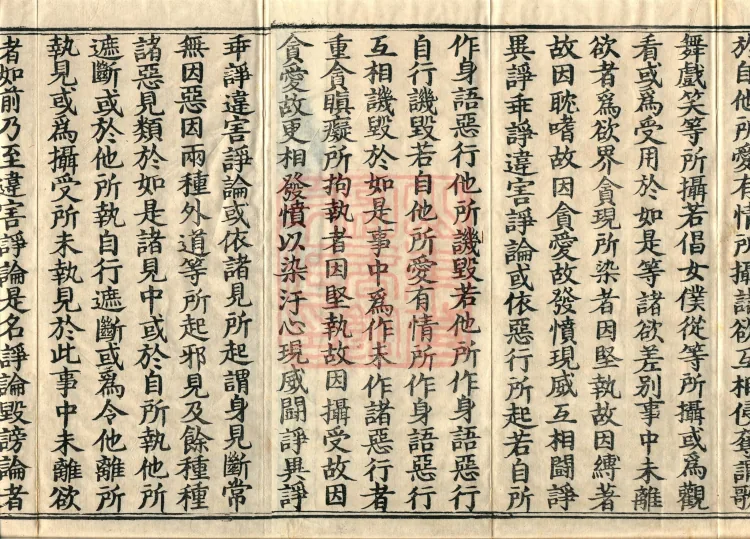 於自他所愛有情所攝諸欲互相侵奪謂歌
舞戲笑等所攝若倡女僕從等所攝或爲觀
看或爲受用於如是等諸欲差別事中未離
欲者爲欲界貪現所染者因堅執故因縛著
故因耽嗜故因貪愛故發憤現威互相鬪諍
異諍乖諍違害諍論或依惡行所起若自所
作身語惡行他所譏毀若他所作身語惡行
自行譏毀若自他所愛有情所作身語惡行
互相譏毀於如是事中爲作未作諸惡行者
重貪瞋癡所拘執者因堅執故因攝受故因
貪愛故更相發憤以染汙心現威鬪諍異諍
乖諍違害諍論或依諸見所起謂身見斷常
無因惡因兩種外道等所起邪見及餘種種
諸惡見類於如是諸見中或於自所執他所
遮斷或於他所執自行遮斷或爲令他離所
執見或爲攝受所未執見於此事中未離欲
者如前乃至違害諍論是名諍論毀謗論者